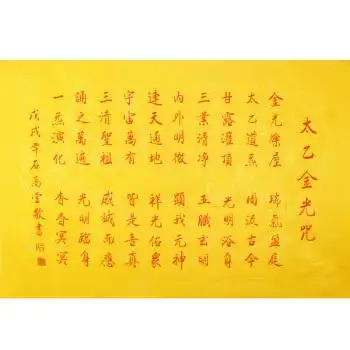 太乙金光咒
金光爍屋 瑞氣盈庭
太乙道炁 周流古今
甘露灌頂 光明浴身
三業清淨 五臟玄明
內外明徹 顯我元神
連天通地 祥光佑眾
宇宙萬有 皆是吾真
三清聖祖 感誠而應
誦之萬遍 光明臨身
一炁演化 杳杳冥冥
戊戌年石高雲敬書